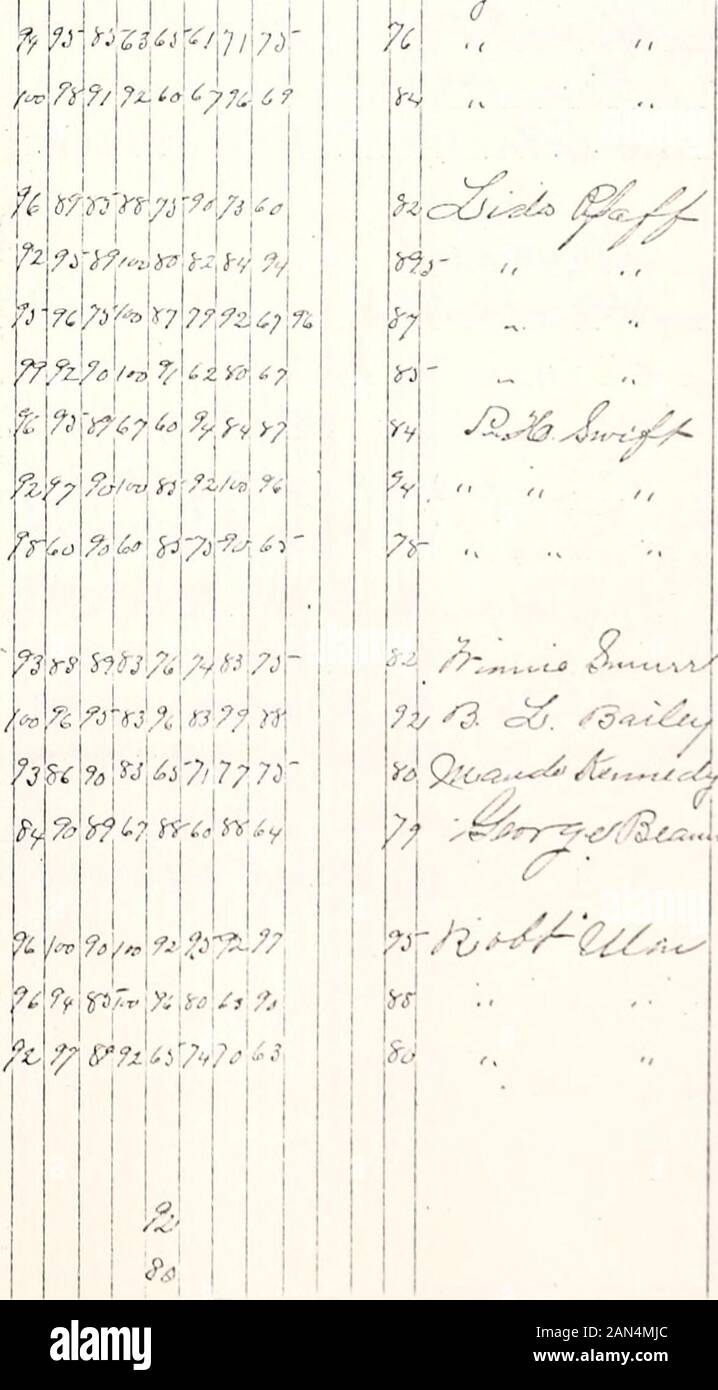 94 95 85 63 65 61 71 75 76 " "
100 98 91 92 60 67 96 69 84 " "
96 89 85 88 75 90 73 60 82 Lida Pfaff
92 95 89 100 80 82 84 94 895 " "
95 96 75 100 87 79 92 67 96 87 " "
99 92 90 100 91 62 80 67 85 " "
96 95 89 67 60 94 84 87 84 P. H. Swift
92 97 90 100 85 92 100 96 94 " " "
98 60 90 60 85 75 90 65 78 " " "
93 88 89 83 76 74 83 75 82 Winnie
100 96 95 83 96 83 99 88 92 B. L. Bailey
93 86 90 83 65 71 77 75 80 Maude Kennedy
84 90 89 67 88 60 88 64 79 George
96 100 90 100 92 95 92 97 95 Robt
96 94 85 100 76 80 65 90 88 " "
92 97 89 92 65 74 70 63 80 " "
92
80
alamy
Image ID: 2AN4MJC
www.alamy.com